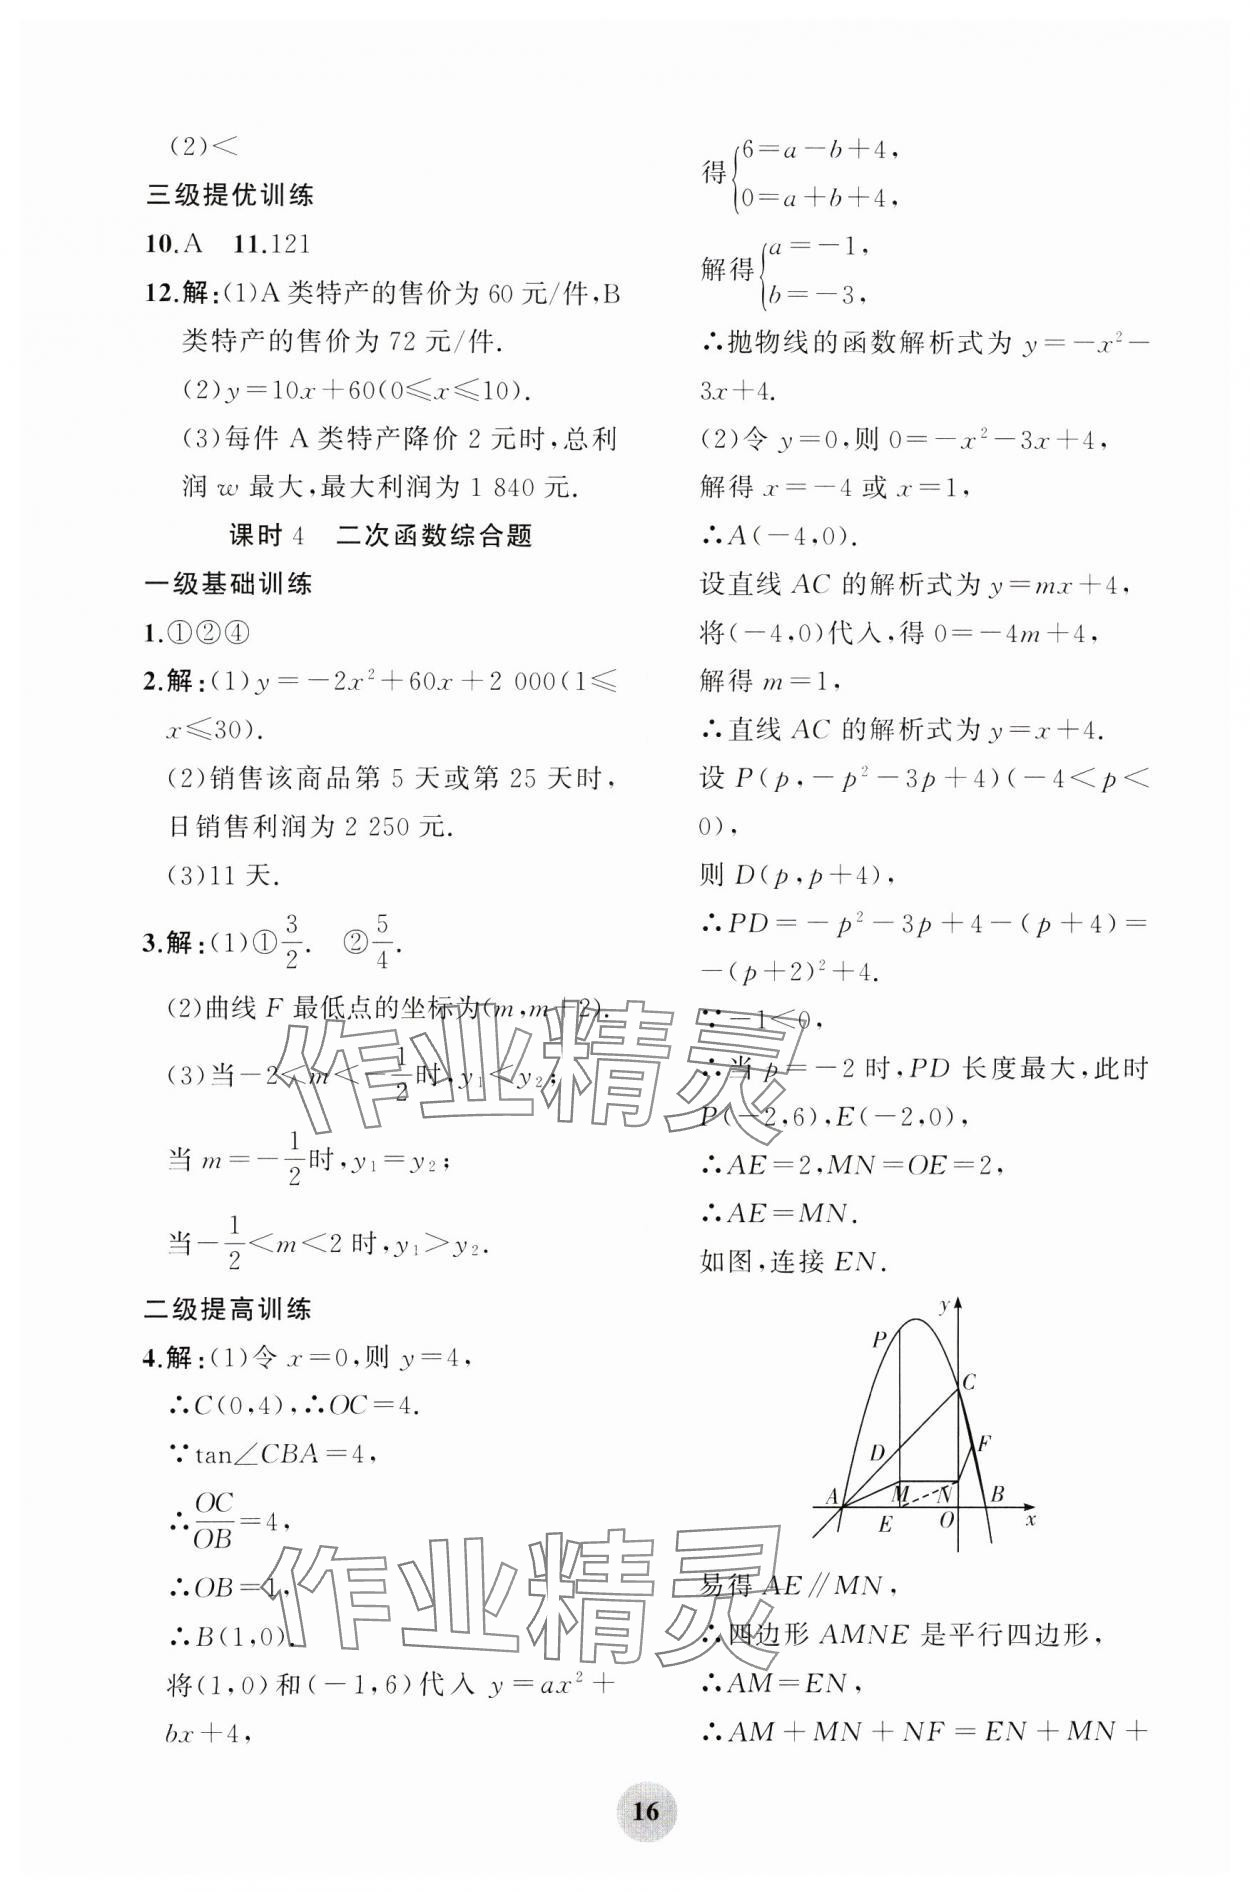 (2)<
三级提优训练
10.A　11.121
12.解:(1)A 类特产的售价为 60 元/件,B
类特产的售价为 72 元/件.
(2)y=10x+60(0≤x≤10).
(3)每件 A 类特产降价 2 元时,总利
润 w 最大,最大利润为 1 840 元.
课时 4　二次函数综合题
一级基础训练
1.①②④
2.解:(1)y=-2x²+60x+2 000(1≤
x≤30).
(2)销售该商品第 5 天或第 25 天时,
日销售利润为 2 250 元.
(3)11 天.
3.解:(1)①3/2.　②5/4.
(2)曲线 F 最低点的坐标为(m,m-2).
(3)当-2<m<-1/2时,y₁<y₂;
当 m=-1/2时,y₁=y₂;
当-1/2<m<2 时,y₁>y₂.
二级提高训练
4.解:(1)令 x=0,则 y=4,
∴C(0,4),∴OC=4.
∵tan∠CBA=4,
∴OC/OB=4,
∴OB=1,
∴B(1,0).
将(1,0)和(-1,6)代入 y=ax²+
bx+4,
得{6=a-b+4,
0=a+b+4,
解得{a=-1,
b=-3,
∴抛物线的函数解析式为 y=-x²-
3x+4.
(2)令 y=0,则 0=-x²-3x+4,
解得 x=-4 或 x=1,
∴A(-4,0).
设直线 AC 的解析式为 y=mx+4,
将(-4,0)代入,得 0=-4m+4,
解得 m=1,
∴直线 AC 的解析式为 y=x+4.
设 P(p,-p²-3p+4)(-4<p<
0),
则 D(p,p+4),
∴PD=-p²-3p+4-(p+4)=
-(p+2)²+4.
∵-1<0,
∴当 p=-2 时,PD 长度最大,此时
P(-2,6),E(-2,0),
∴AE=2,MN=OE=2,
∴AE=MN.
如图,连接 EN.
y
P
C
D
F
A
M
N
B
E
O
x
易得 AE∥MN,
∴四边形 AMNE 是平行四边形,
∴AM=EN,
∴AM+MN+NF=EN+MN+
16
作业精灵
作业精灵